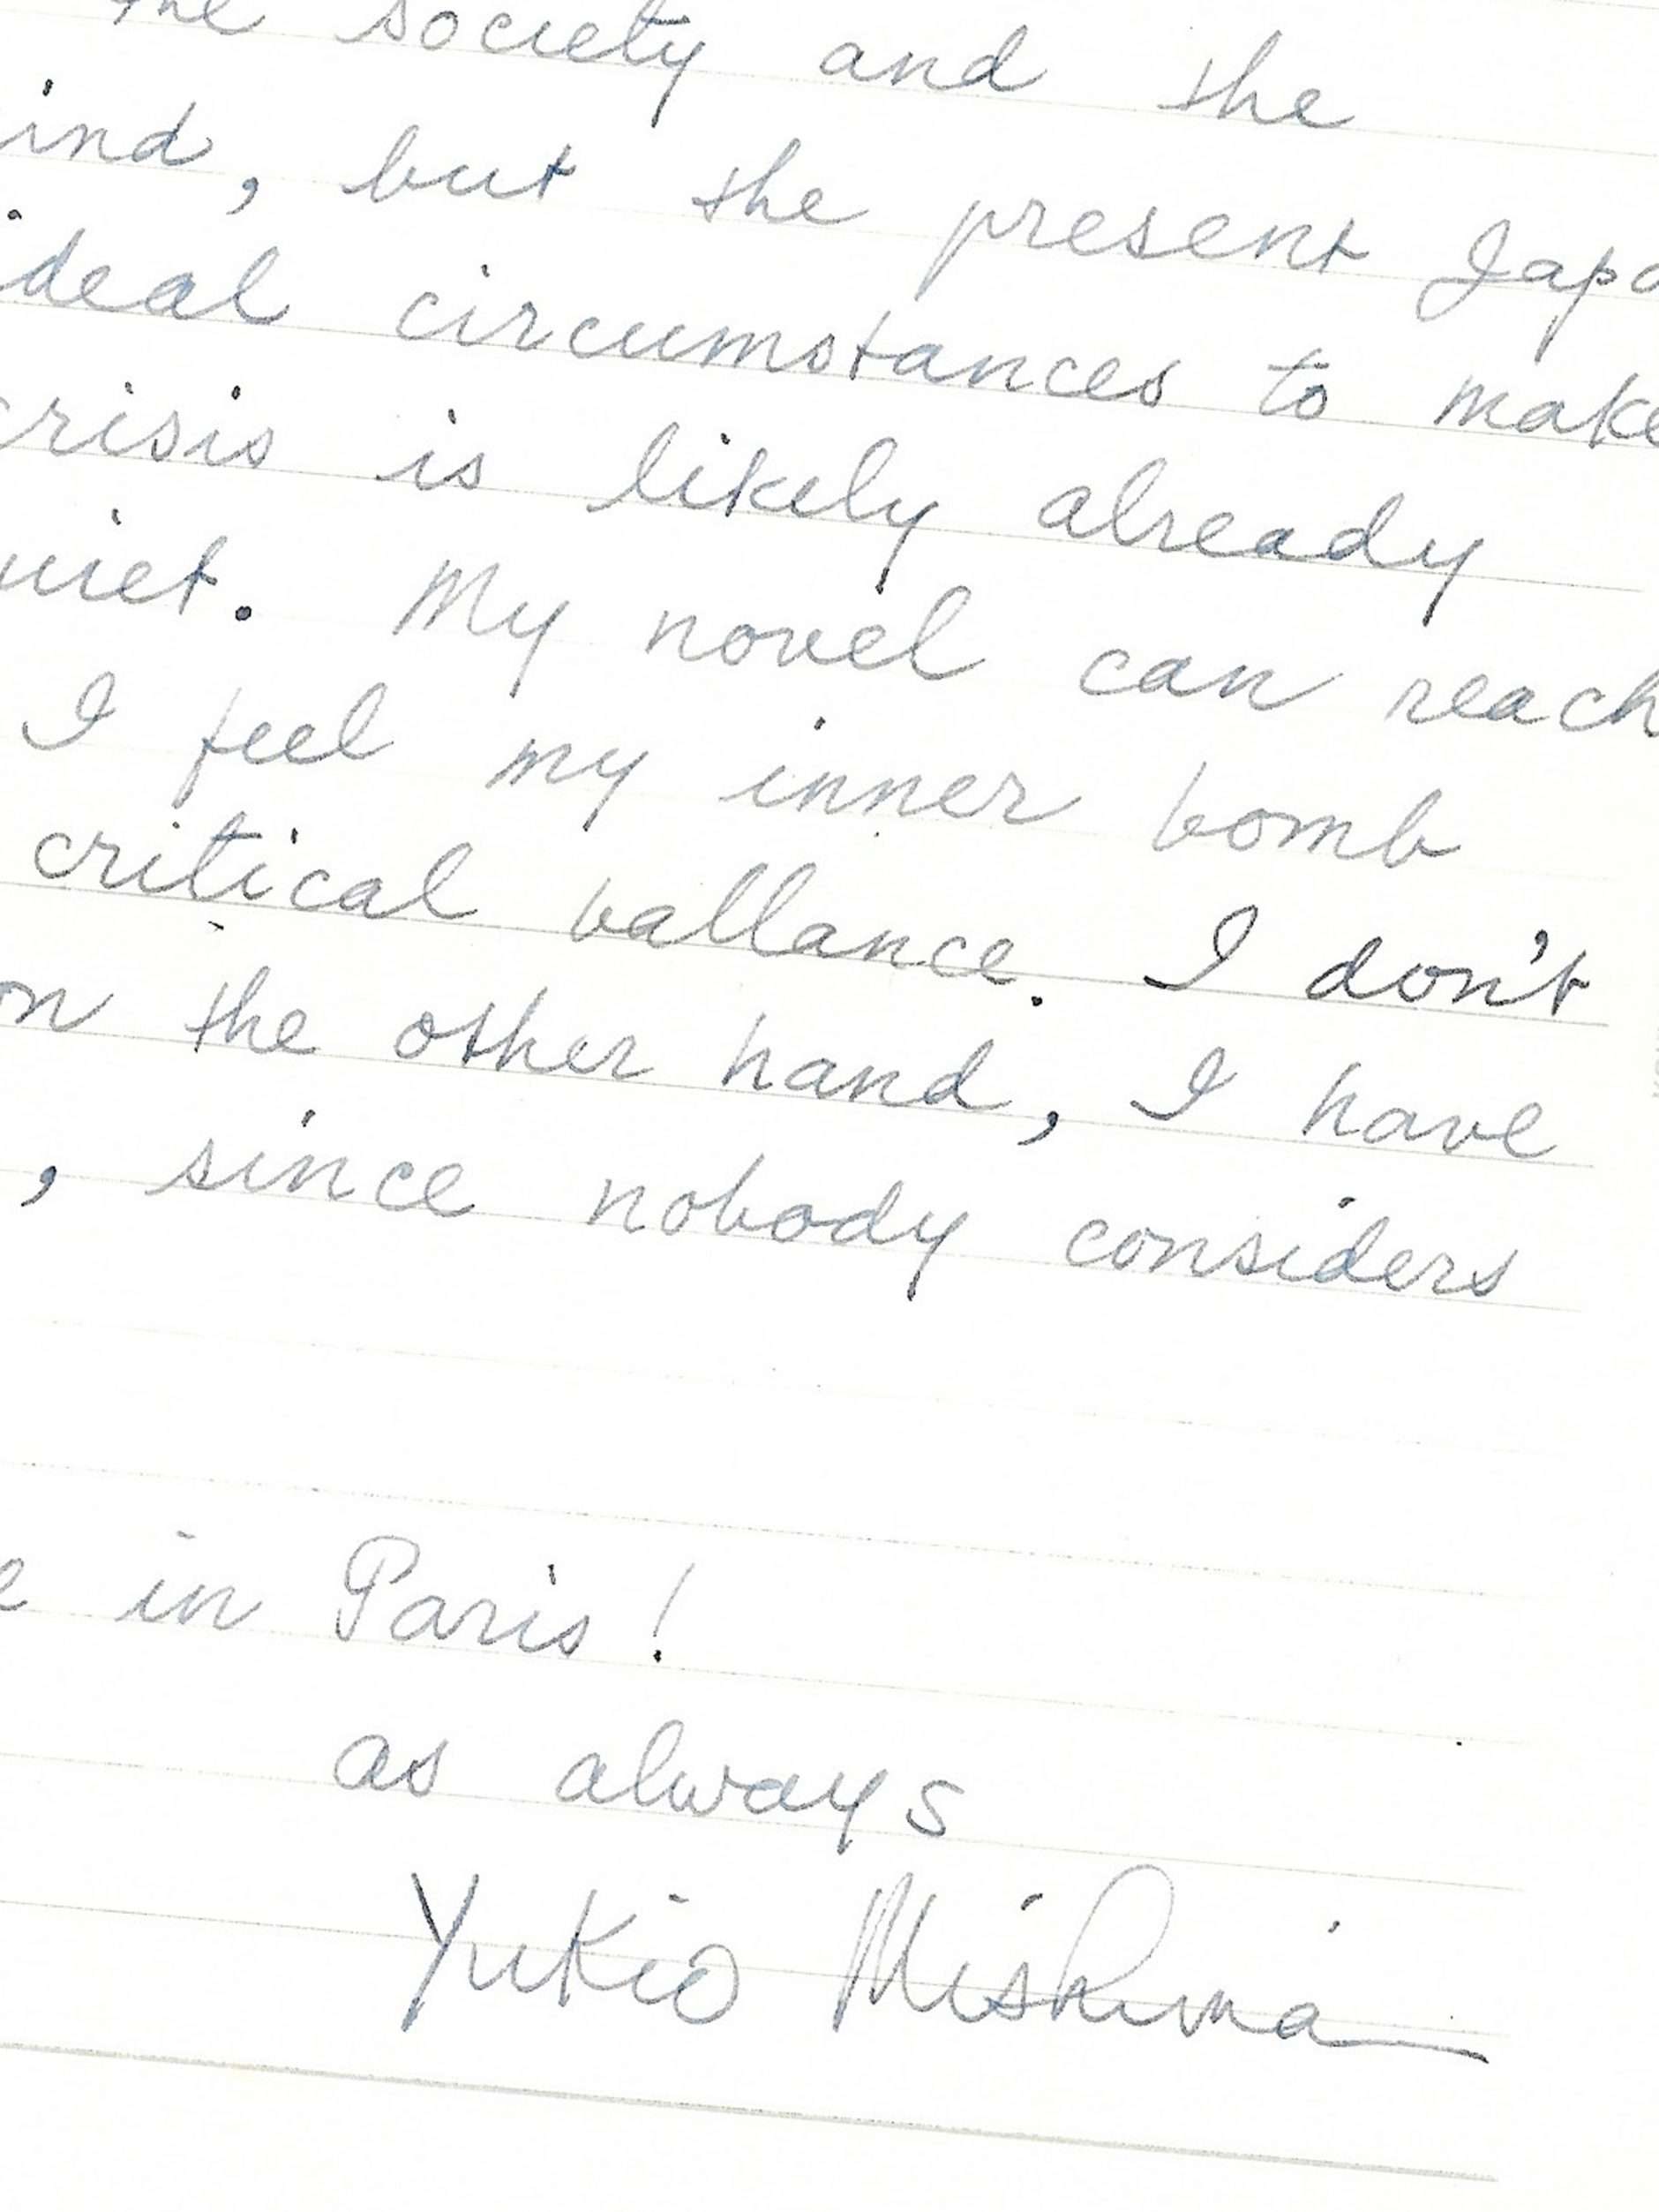 the society and the
ind, but the present Japa
ideal circumstances to make
crisis is likely already
uiet. My novel can reach
I feel my inner bomb
critical vallance. I don't
on the other hand, I have
, since nobody considers
e in Paris!
as always
Yukio Mishima